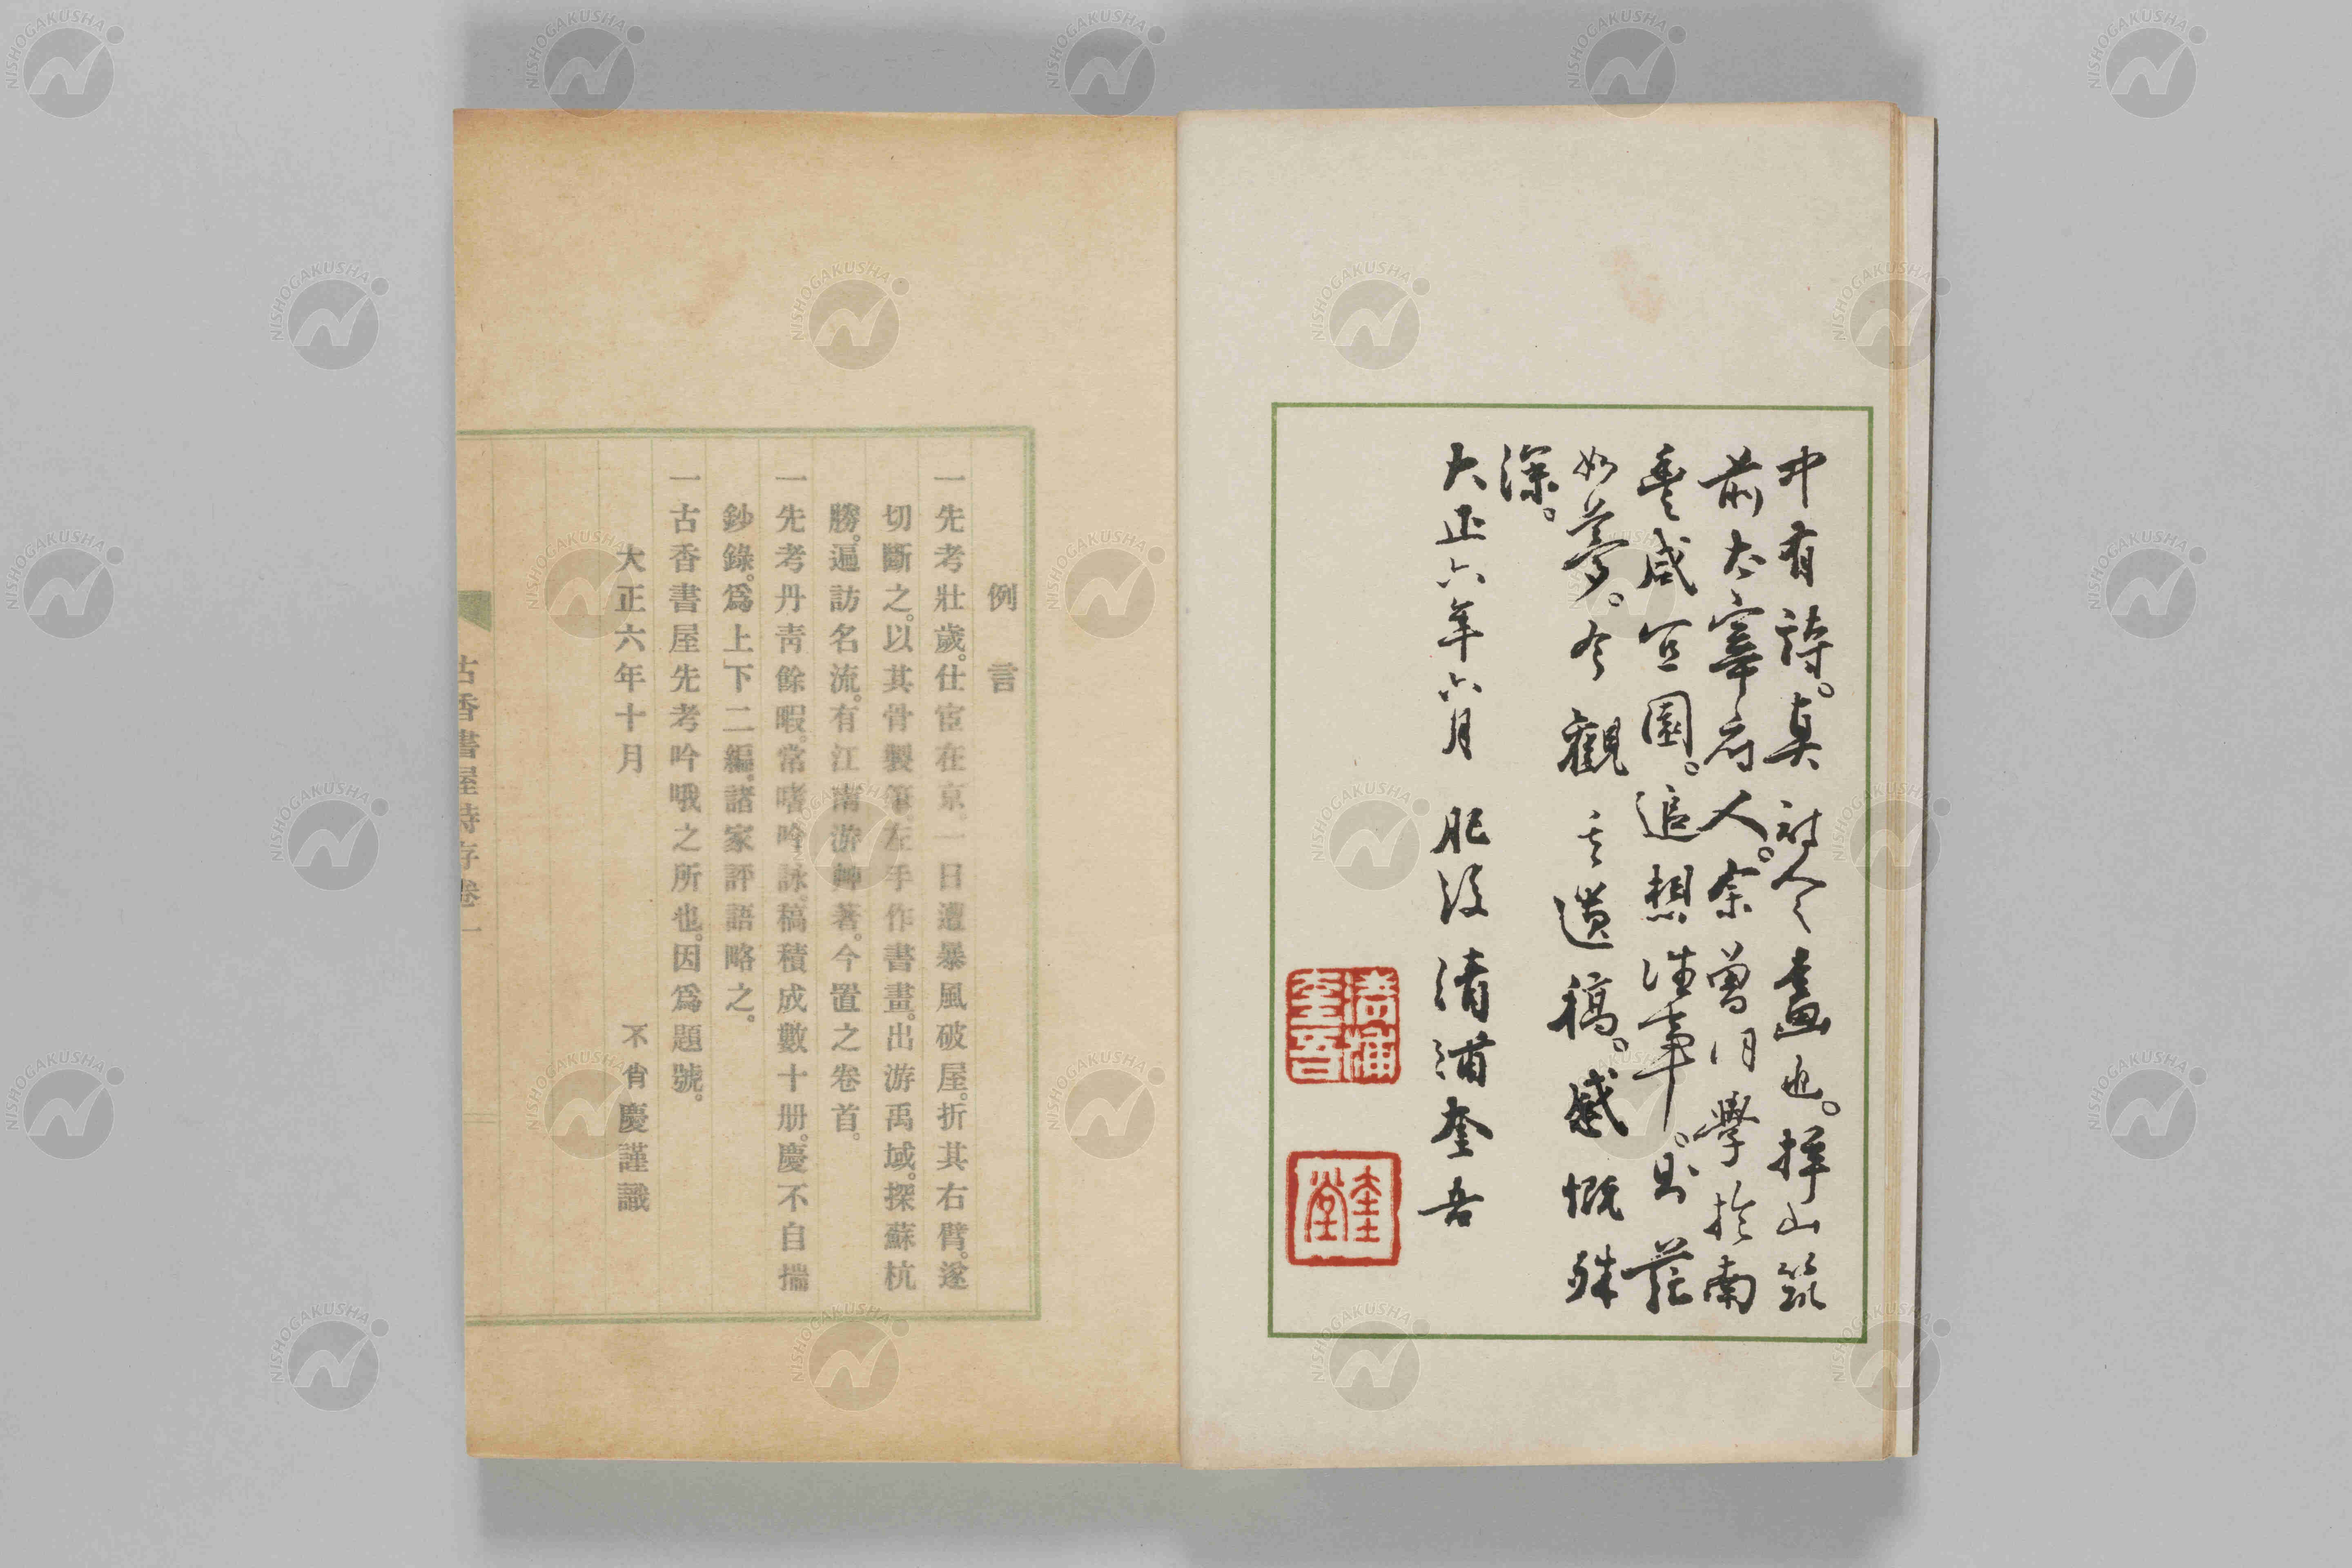 中有詩。真詩人之畫也。拝山筑
前太宰府人。余曾同學於南
豊咸宜園。追想往事。茫
如夢。今觀其遺稿。感慨殊
深。
大正六年六月 肥後 清浦奎吾
清浦奎吾
奎堂
例言
一先考壯歲。仕宦在京。一日遭暴風破屋。折其右臂。遂
切斷之。以其骨製筆。左手作書畫。出游禹域。探蘇杭
勝。遍訪名流。有江南游艸著。今置之卷首。
一先考丹靑餘暇。常嗜吟詠。稿積成數十册。慶不自揣
鈔錄。爲上下二編。諸家評語略之。
一古香書屋先考吟哦之所也。因爲題號。
大正六年十月 不肖慶謹識
古香書屋詩存卷一
NISHOGAKUSHA